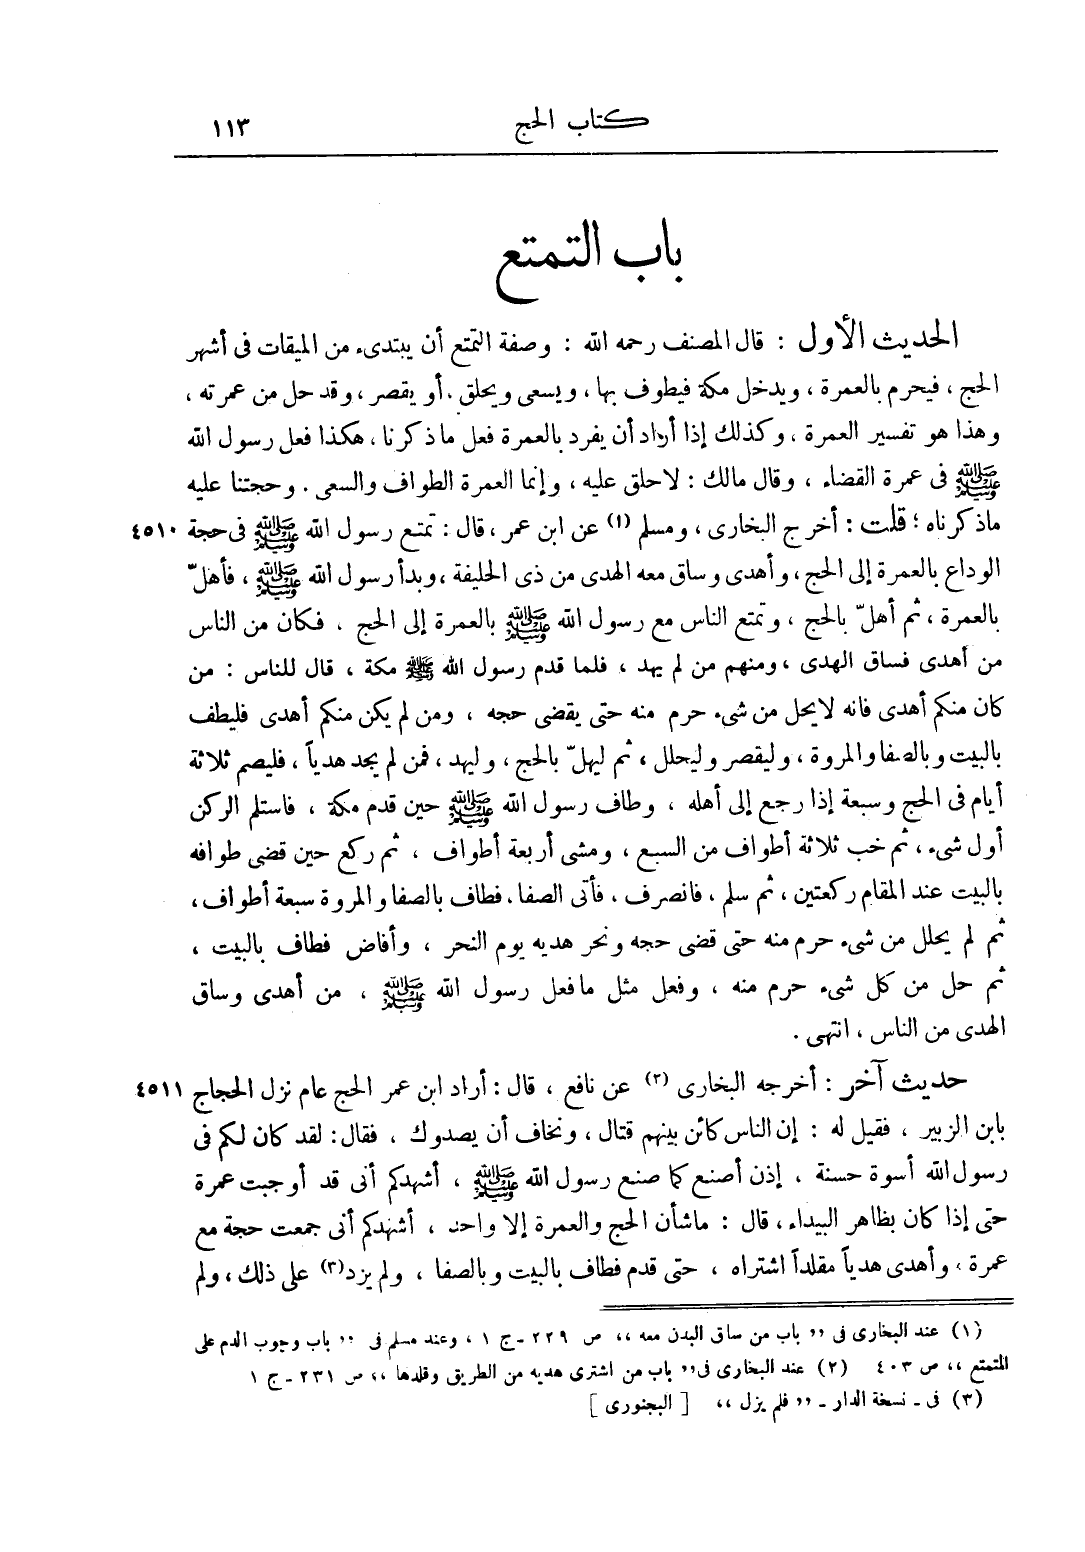 كتاب الحج ١١٣
باب التمتع
الحديث الأول : قال المصنف رحمه الله : وصفة التمتع أن يبتدىء من الميقات فى أشهر
الحج ، فيحرم بالعمرة ، ويدخل مكة فيطوف بها ، ويسعى ويحلق . أو يقصر ، وقد حل من عمرته ،
وهذا هو تفسير العمرة ، وكذلك إذا أراد أن يفرد بالعمرة فعل ما ذكرنا ، هكذا فعل رسول الله
ﷺ فى عمرة القضاء ، وقال مالك : لاحلق عليه ، وإنما العمرة الطواف والسعى . وحجتنا عليه
ماذكرناه ؛ قلت : أخرج البخارى ، ومسلم (١) عن ابن عمر ، قال : تمتع رسول الله ﷺ فى حجة ٤٥١٠
الوداع بالعمرة إلى الحج ، وأهدى وساق معه الهدى من ذى الحليفة ، وبدأ رسول الله ﷺ ، فأهلّ
بالعمرة ، ثم أهلّ بالحج ، وتمتع الناس مع رسول الله ﷺ بالعمرة إلى الحج ، فكان من الناس
من أهدى فساق الهدى ، ومنهم من لم يهد ، فلما قدم رسول الله ﷺ مكة ، قال للناس : من
كان منكم أهدى فانه لايحل من شىء حرم منه حتى يقضى حجه ، ومن لم يكن منكم أهدى فليطف
بالبيت وبالصفا والمروة ، وليقصر وليحلل ، ثم ليهلّ بالحج ، وليهد ، فمن لم يجد هدياً ، فليصم ثلاثة
أيام فى الحج وسبعة إذا رجع إلى أهله ، وطاف رسول الله ﷺ حين قدم مكة ، فاستلم الركن
أول شىء ، ثم خب ثلاثة أطواف من السبع ، ومشى أربعة أطواف ، ثم ركع حين قضى طوافه
بالبيت عند المقام ركعتين ، ثم سلم ، فانصرف ، فأتى الصفا ، فطاف بالصفا والمروة سبعة أطواف ،
ثم لم يحلل من شىء حرم منه حتى قضى حجه ونحر هديه يوم النحر ، وأفاض فطاف بالبيت ،
ثم حل من كل شىء حرم منه ، وفعل مثل مافعل رسول الله ﷺ ، من أهدى وساق
الهدى من الناس ، انتهى .
حديث آخر : أخرجه البخارى (٢) عن نافع ، قال : أراد ابن عمر الحج عام نزل الحجاج ٤٥١١
بابن الزبير ، فقيل له : إن الناس كائن بينهم قتال ، ونخاف أن يصدوك ، فقال : لقد كان لكم فى
رسول الله أسوة حسنة ، إذن أصنع كما صنع رسول الله ﷺ ، أشهدكم أنى قد أوجبت عمرة
حتى إذا كان بظاهر البيداء ، قال : ماشأن الحج والعمرة إلا واحد ، أشهدكم أنى جمعت حجة مع
عمرة ، وأهدى هدياً مقلداً اشتراه ، حتى قدم فطاف بالبيت وبالصفا ، ولم يزد (٣) على ذلك ، ولم
(١) عند البخارى فى ,, باب من ساق البدن معه ،، ص ٢٢٩ ـ ج ١ ، وعند مسلم فى ,, باب وجوب الدم على
المتمتع ،، ص ٤٠٣ (٢) عند البخارى فى ,, باب من اشترى هديه من الطريق وقلدها ،، ص ٢٣١ ـ ج ١
(٣) فى ـ نسخة الدار ـ ,, فلم يزل ،، [ البجنورى ]